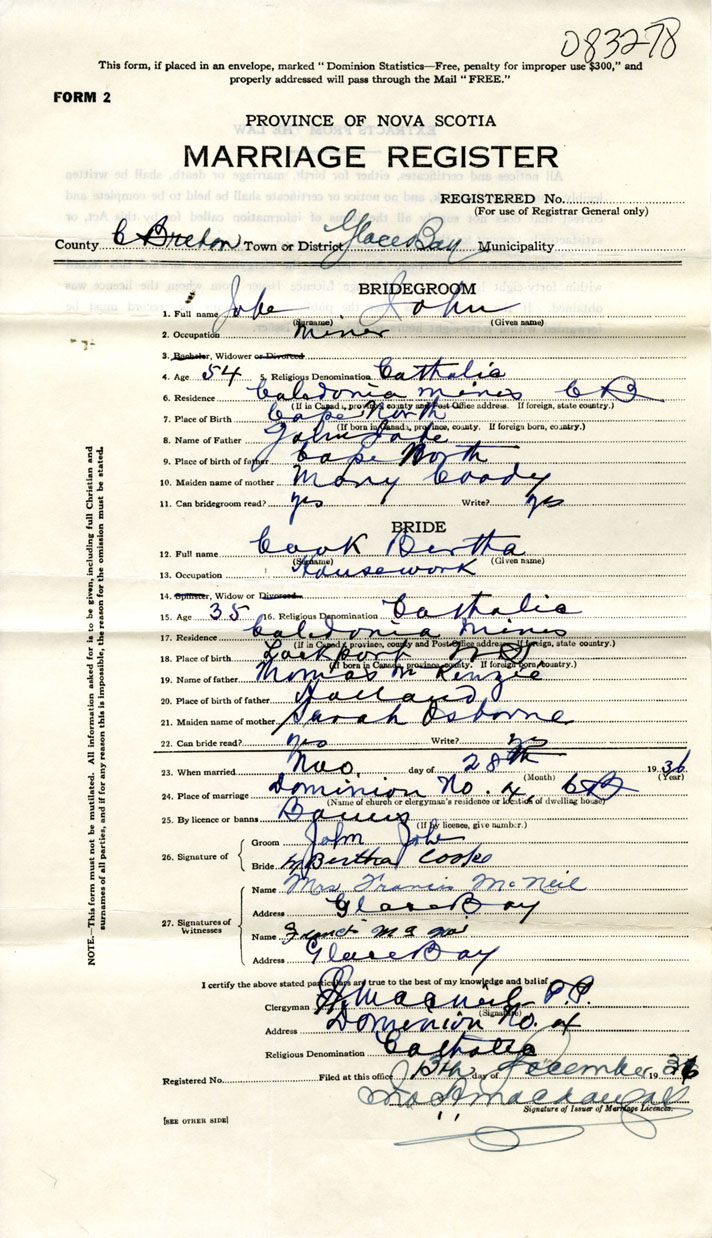 083278
This form, if placed in an envelope, marked "Dominion Statistics—Free, penalty for improper use $300," and
properly addressed will pass through the Mail "FREE."
FORM 2
PROVINCE OF NOVA SCOTIA
MARRIAGE REGISTER
REGISTERED No.
(For use of Registrar General only)
County C Breton Town or District Glace Bay Municipality
BRIDEGROOM
1. Full name Jobe John
(Surname) (Given name)
2. Occupation Miner
3. Bachelor, Widower or Divorced
4. Age 54 5. Religious Denomination Catholic
6. Residence Caledonia Mines C B
(If in Canada, province, county and Post Office address. If foreign, state country.)
7. Place of Birth Cape North
(If born in Canada, province, county. If foreign born, country.)
8. Name of Father John Jobe
9. Place of birth of father Cape North
10. Maiden name of mother Mary Coady
11. Can bridegroom read? yes Write? yes
BRIDE
12. Full name Cook Bertha
(Surname) (Given name)
13. Occupation Housework
14. Spinster, Widow or Divorced
15. Age 35 16. Religious Denomination Catholic
17. Residence Caledonia Mines
(If in Canada, province, county and Post Office address. If foreign, state country.)
18. Place of birth Lockport N S
(If born in Canada, province, county. If foreign born, country.)
19. Name of father Thomas McKenzie
20. Place of birth of father Holland
21. Maiden name of mother Sarah Osborne
22. Can bride read? yes Write? yes
23. When married Nov. day of 28th 1936
(Month) (Year)
24. Place of marriage Dominion No. 4, C B
(Name of church or clergyman's residence or location of dwelling house)
25. By licence or banns Banns
(If by licence, give number.)
26. Signature of
Groom John Jobe
Bride Bertha Cooke
27. Signatures of Witnesses
Name Mrs Francis McNeil
Address Glace Bay
Name
Address Glace Bay
I certify the above stated particulars are true to the best of my knowledge and belief.
Clergyman P.P.
(Signature)
Address Dominion No. 4
Religious Denomination Catholic
Registered No. Filed at this office 13th day of December 1936
Signature of Issuer of Marriage Licences.
[SEE OTHER SIDE]
NOTE.—This form must not be mutilated. All information asked for is to be given, including full Christian and
surnames of all parties, and if for any reason this is impossible, the reason for the omission must be stated.